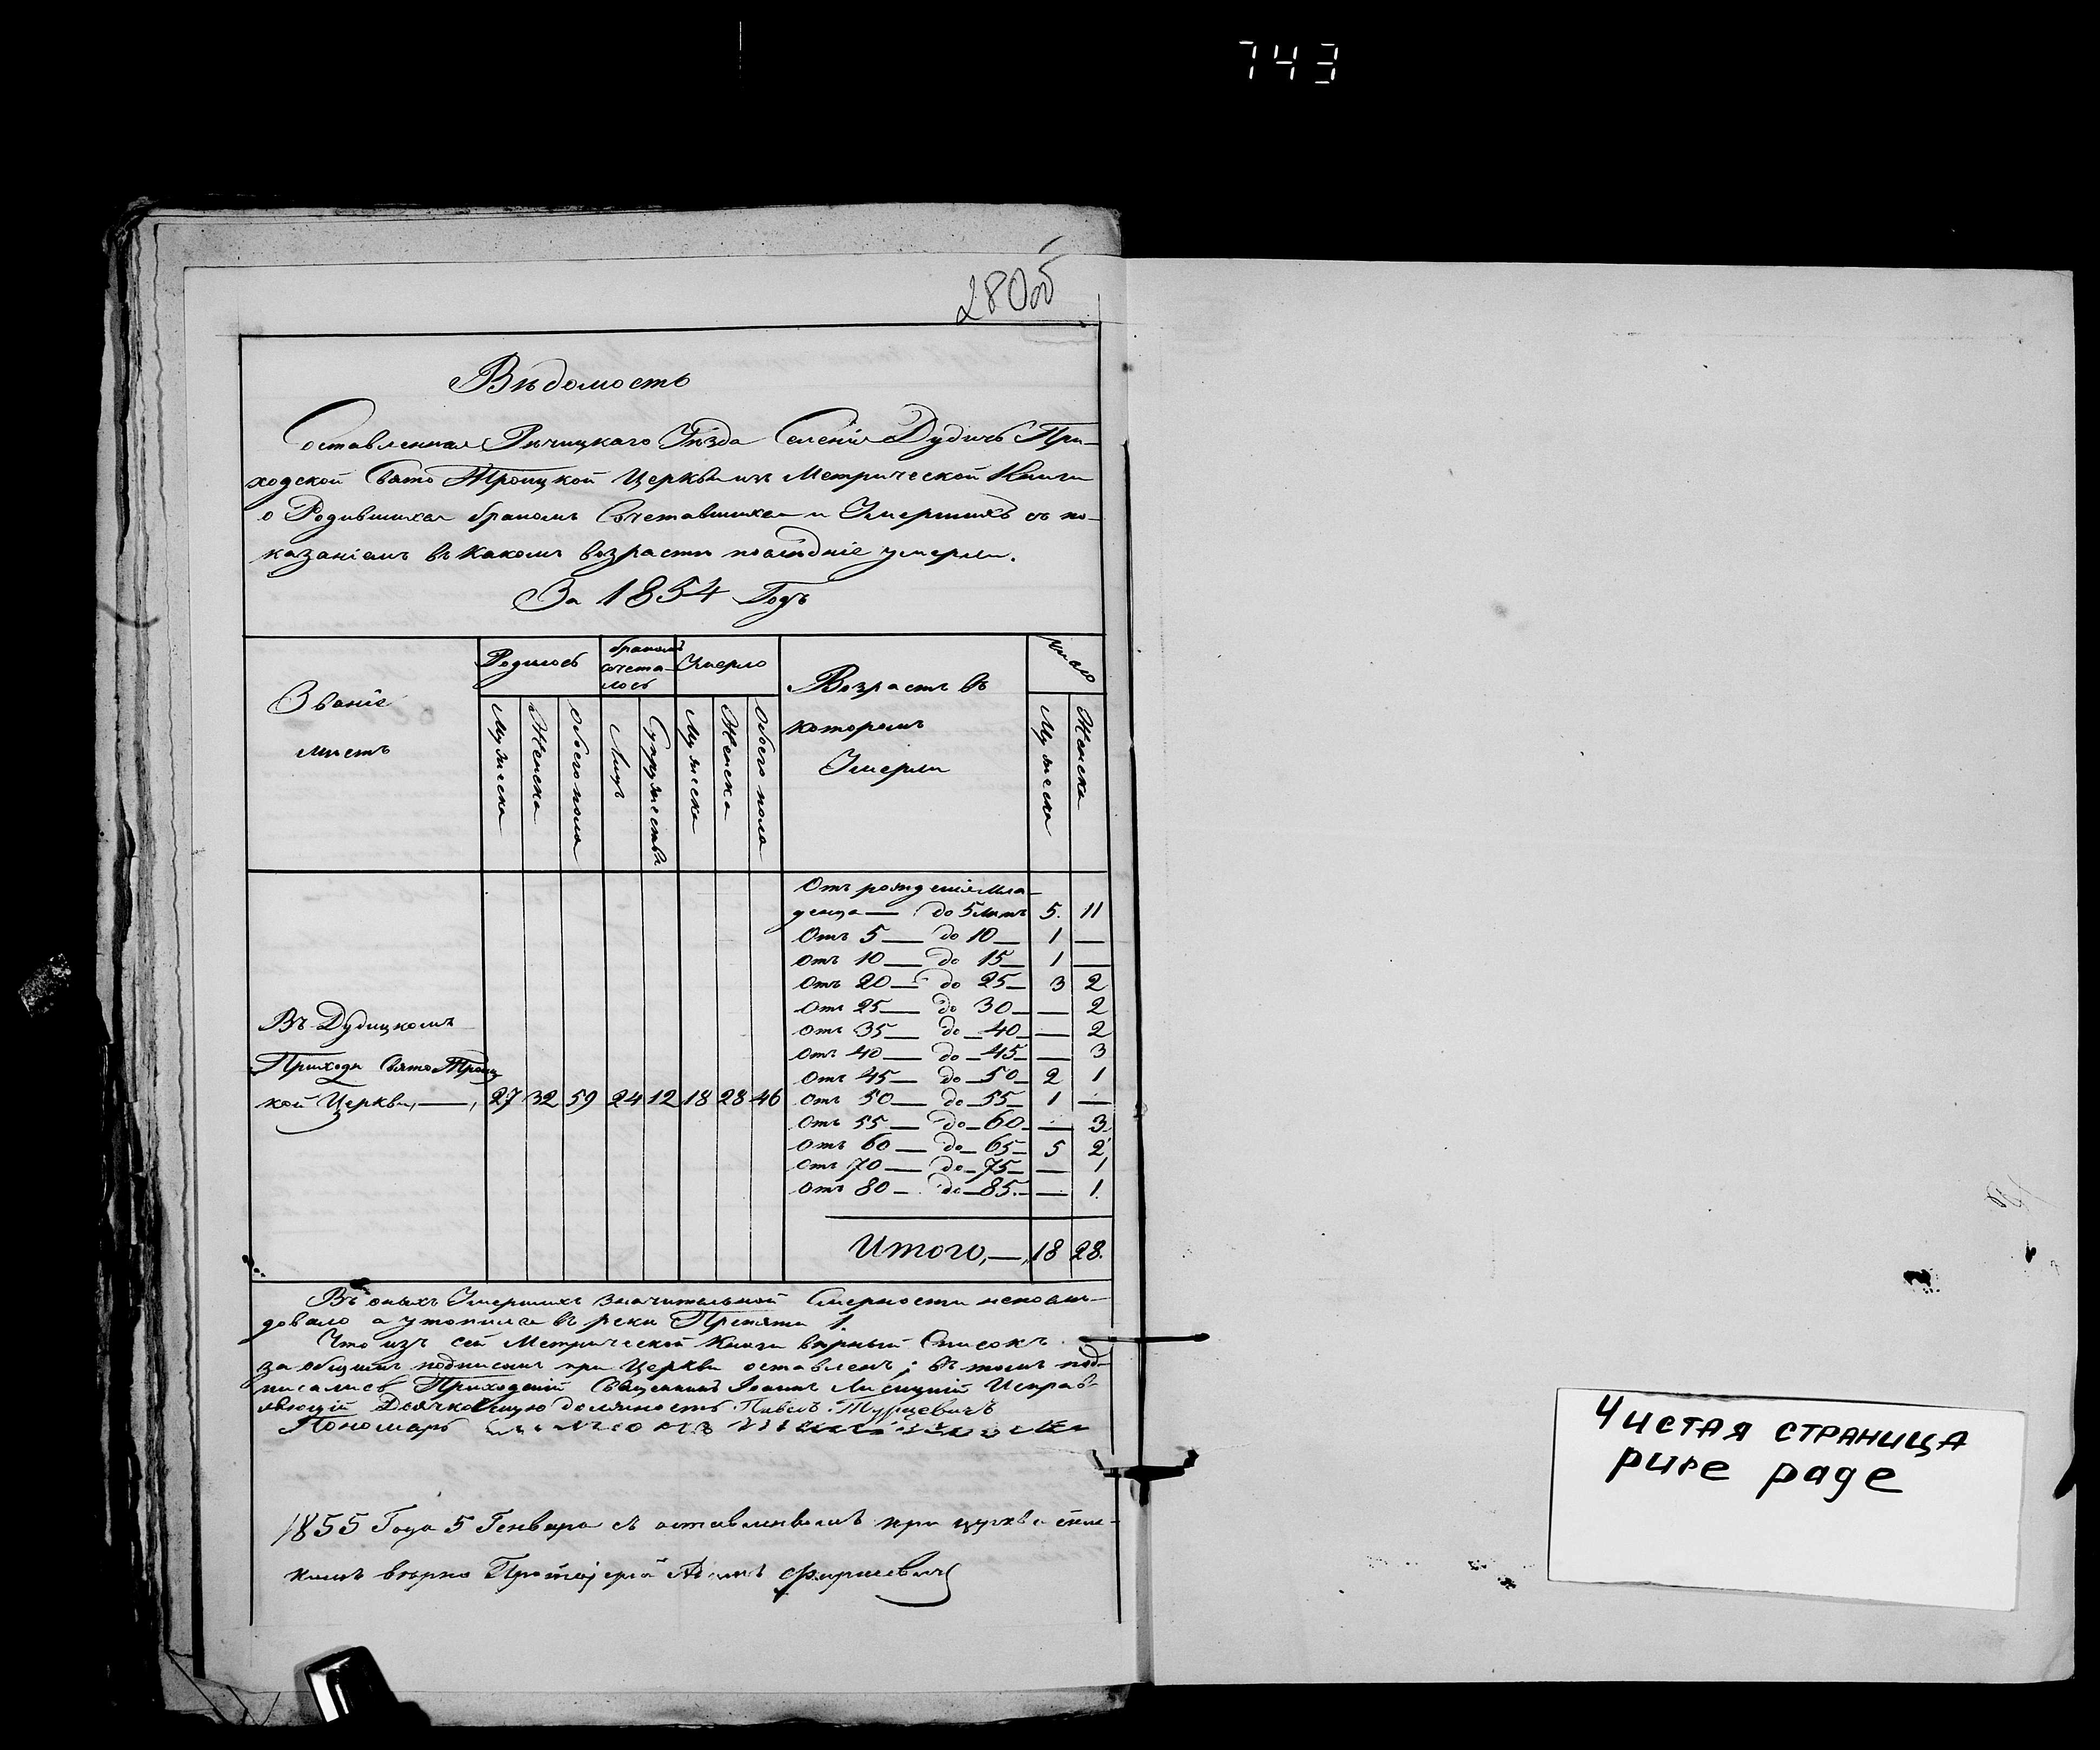 743
280об
Вѣдомость
Составленная Рѣчицкаго Уѣзда Селенія Дудичъ При-
ходской Свято Троицкой Церкви изъ Метрической Книги
о Родившихся бракомъ Сочетавшихся и Умершихъ съ по-
казаніемъ въ какомъ возрасти послѣдніе умерли.
За 1854 Годъ
Званіе мѣстъ
Родилось
бракомъ сочета-лось
Умерло
Возрастъ въ которомъ Умерли
Мужеска
Женска
Обоего пола
Лицъ
Супружества
Мужеска
Женска
Обоего пола
Мужеска
Женска
Отъ рожденія Мла-
денца — до 5 лѣтъ 5. 11
Отъ 5 — до 10 — 1 —
Отъ 10 — до 15 — 1 —
Отъ 20 — до 25 — 3 2
Отъ 25 — до 30 — — 2
Отъ 35 — до 40 — — 2
Отъ 40 — до 45 — — 3
Отъ 45 — до 50 — 2 1
Отъ 50 — до 55 — 1 —
Отъ 55 — до 60 — — 3
Отъ 60 — до 65 — 5 2
Отъ 70 — до 75 — — 1
Отъ 80 — до 85 — — 1.
Въ Дудицкомъ
Приходѣ Свято Троиц
кой Церкви, — 27 32 59 24 12 18 28 46
Итого, — 18 28.
Въ оныхъ Умершихъ значительной Смерности непослѣ-
довало а утопился въ реки Препяти 1.
Что изъ сей Метрической Книги вѣрный Списокъ
за общимъ подписомъ при Церкви оставленъ; въ томъ под-
писались Приходскій Священникъ Іоаннъ Лисицкій Исправ-
ляющій Дьячковскую должность Павелъ Турцевичъ
Пономарь
1855 Года 5 Генваря съ оставленнымъ при церкви спис-
комъ вѣрно Протоіерей
Чистая страница
pure page